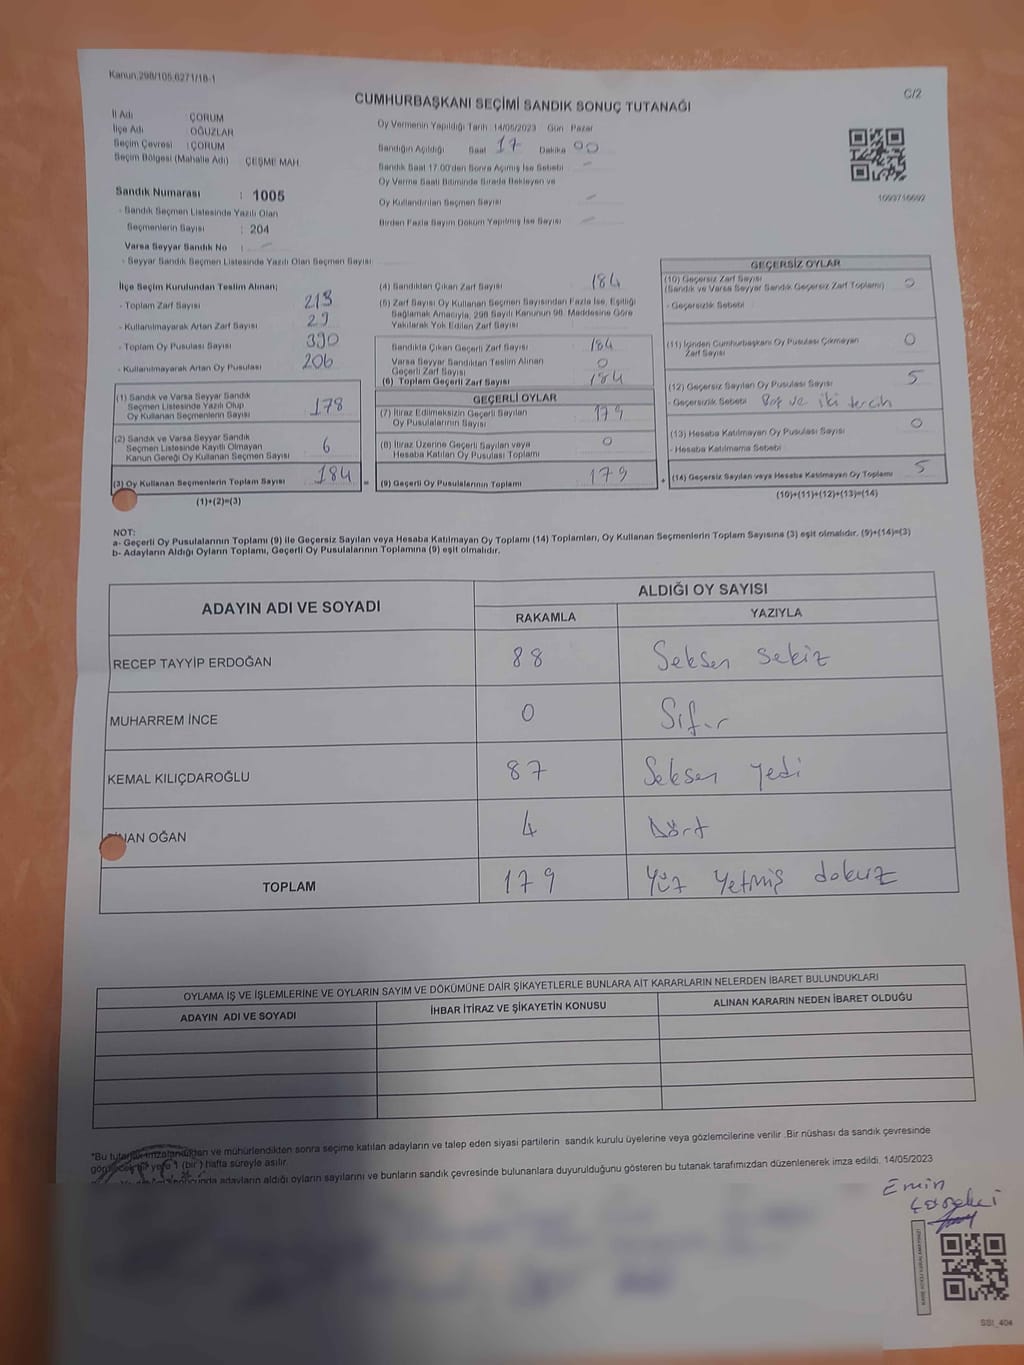 Kanun:298/105,6271/18-1
C/2
CUMHURBAŞKANI SEÇİMİ SANDIK SONUÇ TUTANAĞI
İl Adı : ÇORUM
İlçe Adı : OĞUZLAR
Seçim Çevresi : ÇORUM
Seçim Bölgesi (Mahalle Adı) ÇEŞME MAH.
Sandık Numarası : 1005
- Sandık Seçmen Listesinde Yazılı Olan
Seçmenlerin Sayısı : 204
Varsa Seyyar Sandık No : -
- Seyyar Sandık Seçmen Listesinde Yazılı Olan Seçmen Sayısı:
Oy Vermenin Yapıldığı Tarih :14/05/2023 Gün : Pazar
Sandığın Açıldığı Saat 17 Dakika 00
Sandık Saat 17:00'den Sonra Açılmış İse Sebebi -
Oy Verme Saati Bitiminde Sırada Bekleyen ve
Oy Kullandırılan Seçmen Sayısı -
Birden Fazla Sayım Döküm Yapılmış İse Sayısı -
1093716692
İlçe Seçim Kurulundan Teslim Alınan;
- Toplam Zarf Sayısı 213
- Kullanılmayarak Artan Zarf Sayısı 29
- Toplam Oy Pusulası Sayısı 390
- Kullanılmayarak Artan Oy Pusulası 206
(1) Sandık ve Varsa Seyyar Sandık
Seçmen Listesinde Yazılı Olup
Oy Kullanan Seçmenlerin Sayısı 178
(2) Sandık ve Varsa Seyyar Sandık
Seçmen Listesinde Kayıtlı Olmayan
Kanun Gereği Oy Kullanan Seçmen Sayısı 6
(3) Oy Kullanan Seçmenlerin Toplam Sayısı 184
(1)+(2)=(3)
(4) Sandıktan Çıkan Zarf Sayısı 184
(5) Zarf Sayısı Oy Kullanan Seçmen Sayısından Fazla İse, Eşitliği
Sağlamak Amacıyla, 298 Sayılı Kanunun 98. Maddesine Göre
Yakılarak Yok Edilen Zarf Sayısı
Sandıkta Çıkan Geçerli Zarf Sayısı 184
Varsa Seyyar Sandıktan Teslim Alınan
Geçerli Zarf Sayısı 0
(6) Toplam Geçerli Zarf Sayısı 184
GEÇERLİ OYLAR
(7) İtiraz Edilmeksizin Geçerli Sayılan
Oy Pusulalarının Sayısı 179
(8) İtiraz Üzerine Geçerli Sayılan veya
Hesaba Katılan Oy Pusulası Toplamı 0
= (9) Geçerli Oy Pusulalarının Toplamı 179
GEÇERSİZ OYLAR
(10) Geçersiz Zarf Sayısı
(Sandık ve Varsa Seyyar Sandık Geçersiz Zarf Toplamı) 0
- Geçersizlik Sebebi
(11) İçinden Cumhurbaşkanı Oy Pusulası Çıkmayan
Zarf Sayısı 0
(12) Geçersiz Sayılan Oy Pusulası Sayısı 5
- Geçersizlik Sebebi Boş ve iki tercih
(13) Hesaba Katılmayan Oy Pusulası Sayısı 0
- Hesaba Katılmama Sebebi
+ (14) Geçersiz Sayılan veya Hesaba Katılmayan Oy Toplamı 5
(10)+(11)+(12)+(13)=(14)
NOT:
a- Geçerli Oy Pusulalarının Toplamı (9) ile Geçersiz Sayılan veya Hesaba Katılmayan Oy Toplamı (14) Toplamları, Oy Kullanan Seçmenlerin Toplam Sayısına (3) eşit olmalıdır. (9)+(14)=(3)
b- Adayların Aldığı Oyların Toplamı, Geçerli Oy Pusulalarının Toplamına (9) eşit olmalıdır.
ADAYIN ADI VE SOYADI
ALDIĞI OY SAYISI
RAKAMLA YAZIYLA
RECEP TAYYİP ERDOĞAN 88 Seksen sekiz
MUHARREM İNCE 0 Sıfır
KEMAL KILIÇDAROĞLU 87 Seksen yedi
SİNAN OĞAN 4 Dört
TOPLAM 179 Yüz Yetmiş dokuz
OYLAMA İŞ VE İŞLEMLERİNE VE OYLARIN SAYIM VE DÖKÜMÜNE DAİR ŞİKAYETLERLE BUNLARA AİT KARARLARIN NELERDEN İBARET BULUNDUKLARI
ADAYIN ADI VE SOYADI İHBAR İTİRAZ VE ŞİKAYETİN KONUSU ALINAN KARARIN NEDEN İBARET OLDUĞU
*Bu tutanak imzalandıktan ve mühürlendikten sonra seçime katılan adayların ve talep eden siyasi partilerin sandık kurulu üyelerine veya gözlemcilerine verilir .Bir nüshası da sandık çevresinde
yere 1 (bir ) hafta süreyle asılır.
adayların aldığı oyların sayılarını ve bunların sandık çevresinde bulunanlara duyurulduğunu gösteren bu tutanak tarafımızdan düzenlenerek imza edildi. 14/05/2023
Emin
SSI_404